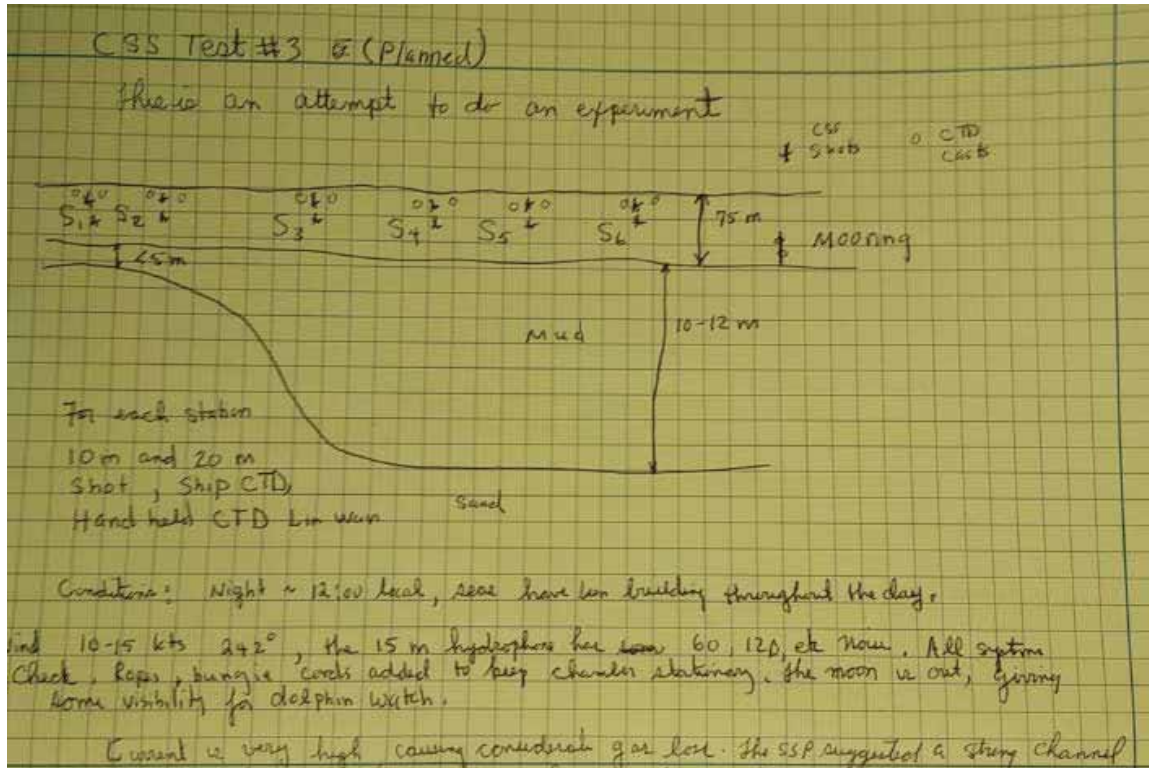 CSS Test #3 (Planned)
This is an attempt to do an experiment
CSS Shots
o CTD Casts
S1 S2 S3 S4 S5 S6
75 m
Mooring
<5m
Mud
10-12 m
For each station
10 m and 20 m
Shot, Ship CTD,
Hand held CTD
Sand
Conditions: Night ~ 12:00 local, seas have been building throughout the day.
10-15 kts 242°, the 15 m hydrophone has 60, 120, etc now. All systems
Check. Ropes, bungie cords added to keep chamber stationary. The moon is out, giving
some visibility for dolphin watch.
Current is very high, causing considerab gas loss. The SSP suggested a strong channel